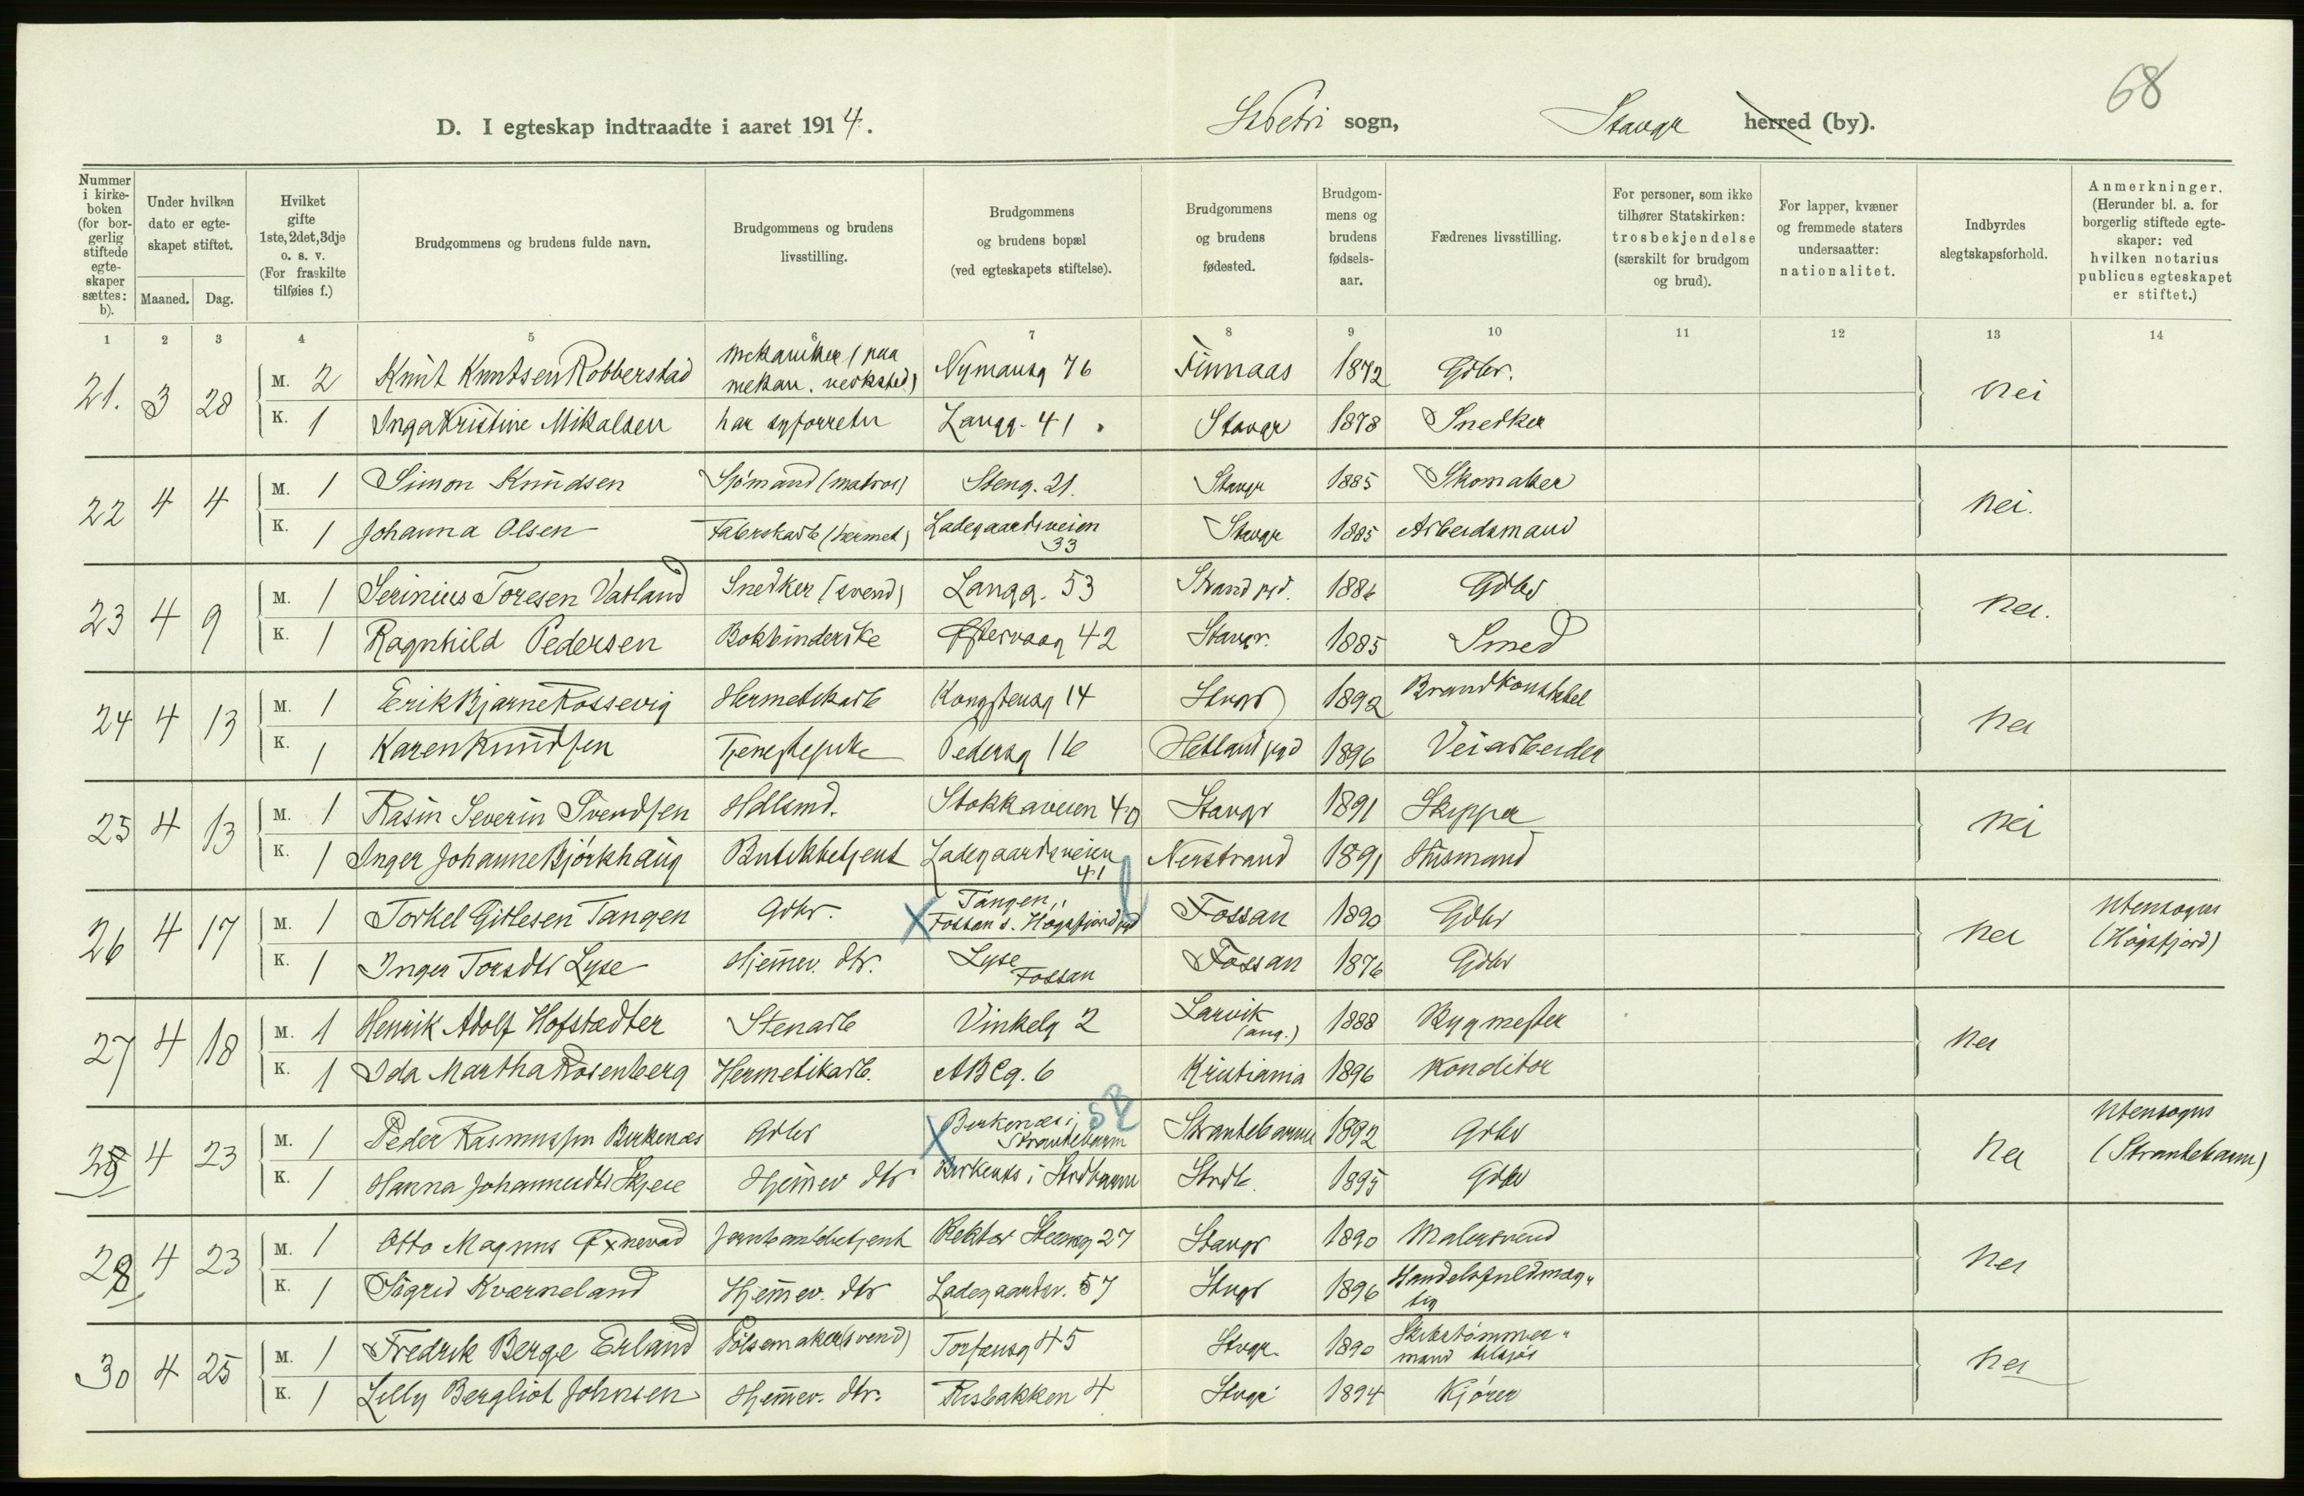 68
D. I egteskap indtraadte i aaret 1914.
St Petri sogn, Stavgr herred (by).
Nummer i kirkeboken (for borgerlig stiftede egteskaper sættes: b).
Under hvilken dato er egteskapet stiftet.
Maaned. Dag.
Hvilket gifte 1ste, 2det, 3dje o. s. v. (For fraskilte tilføies f.)
Brudgommens og brudens fulde navn.
Brudgommens og brudens livsstilling.
Brudgommens og brudens bopæl (ved egteskapets stiftelse).
Brudgommens og brudens fødested.
Brudgommens og brudens fødselsaar.
Fædrenes livsstilling.
For personer, som ikke tilhører Statskirken: trosbekjendelse (særskilt for brudgom og brud).
For lapper, kvæner og fremmede staters undersaatter: nationalitet.
Indbyrdes slegtskapsforhold.
Anmerkninger. (Herunder bl. a. for borgerlig stiftede egteskaper: ved hvilken notarius publicus egteskapet er stiftet.)
1 2 3 4 5 6 7 8 9 10 11 12 13 14
21. 3 28 M. 2 Knut Knutsen Robberstad mekaniker (paa mekan. verksted) Nymansg 76 Finnaas 1872 Gdbr. nei
K. 1 Inga Kristine Mikalsen har syforretn Langg. 41. Stavgr 1878 Snedker
22 4 4 M. 1 Simon Knudsen Sjømand (matros) Steng. 21. Stavgr 1885 Skomaker nei.
K. 1 Johanna Olsen Fabrikarb (hermet) Ladegaardsveien 33 Stavgr 1885 Arbeidsmand
23 4 9 M. 1 Serinius Toresen Vatland Snedker (svend) Langg. 53 Strand pgd. 1886 Gdbr nei.
K. 1 Ragnhild Pedersen Bokbinderske Østervaag 42 Stavgr. 1885 Smed
24 4 13 M. 1 Erik Bjarne Rossevig Hermetikarb Kongstensg 14 Stvgr 1892 Brandkonstabel nei
K. 1 Karen Knudsen Tjenestepike Pedersg 16 Hetland pgd 1896 Veiarbeider
25 4 13 M. 1 Rasin Severin Svendsen Hdlsmd. Stokkaveien 40 Stavgr 1891 Skipper nei
K. 1 Inger Johanne Bjørkhaug Butikbetjent Ladegaardsveien 41 Nerstrand 1891 Husmand
26 4 17 M. 1 Torkel Gitlesen Tangen Gdbr. Tangen, Fossan s. Høgsfjord pgd Fossan 1890 Gdbr nei Utensogns (Høgsfjord)
K. 1 Inger Torsdtr Lyse Hjemmev. dtr. Lyse Fossan Fossan 1876 Gdbr
27 4 18 M. 1 Henrik Adolf Hofstædter Stenarb Vinkelg 2 Larvik (ang.) 1888 Bygmester nei
K. 1 Ida Martha Rosenberg Hermetikarb. ABCg. 6 Kristiania 1896 Konditor
28 4 23 M. 1 Peder Rasmussen Birkenæs Gdbr Birkenæs i Strandebarm 5B Strandebarm 1892 Gdbr nei Utensogns (Strandebarm)
K. 1 Hanna Johannesdtr Skjeie Hjemmev dtr Birkenæs i Strdbarm Strdb. 1895 Gdbr
28 4 23 M. 1 Otto Magnus Øxnevad Jernbanebetjent Rektor Steensg 27 Stavgr 1890 Malersvend nei
K. 1 Sigrid Kværneland Hjemmev. dtr Ladegaardsv. 57 Stvgr 1896 Handelsfuldmægtig
30 4 25 M. 1 Fredrik Berge Erland Pølsemaker (svend) Torfæusg 45 Stvgr. 1890 Skibstømmermand tilsjøs nei
K. 1 Lilly Bergliot Johnsen Hjemmev. dtr. Risbakken 4 Stvgr 1894 Kjører